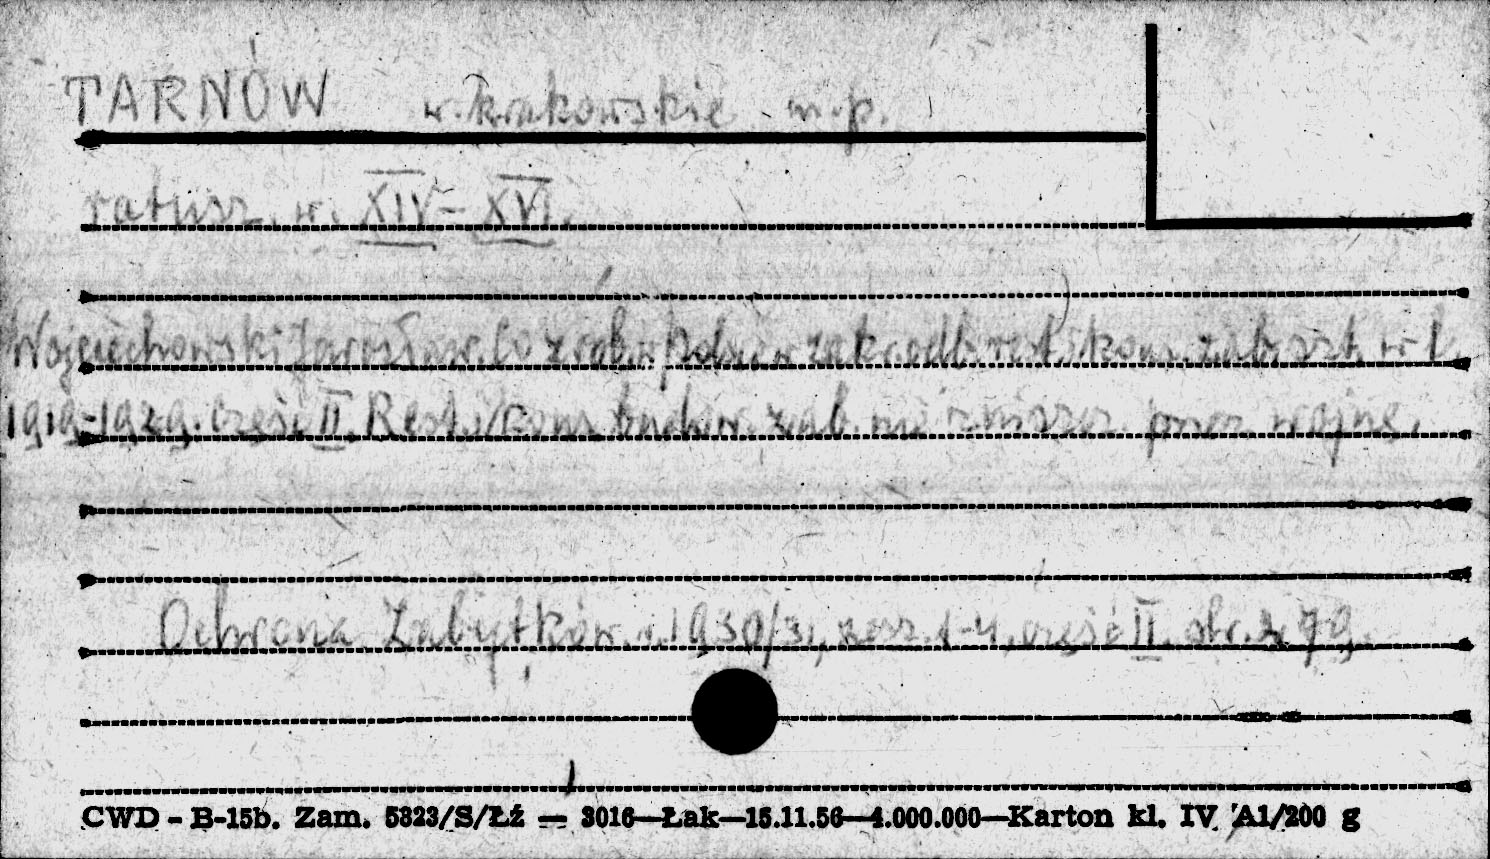 TARNÓW w. krakowskie m.p.
ratusz w. XIV-XVI.
Wojciechowski Jarosław. Co zrob. w Polsce w zakr. odb. rest. i kons. zab. szt. w l.
1919-1929. Część II. Rest. i kons. budow. zab. nie zniszcz. przez wojnę.
Ochrona Zabytków. r. 1930/31, zesz. 1-4, część II, str. 279.
CWD - B-15b. Zam. 5323/S/Łź — 3016—Łak—15.11.56—4.000.000—Karton kl. IV A1/200 g